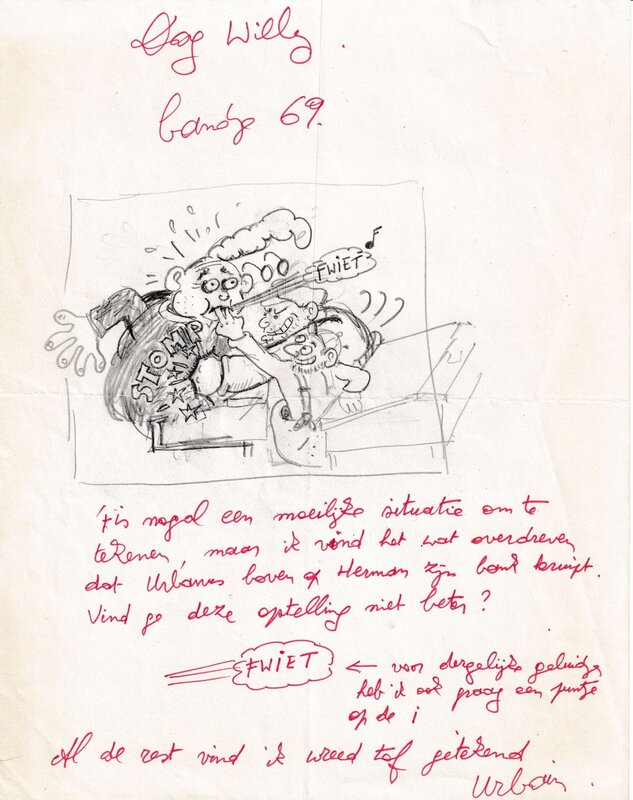 Dag Willy.
bandje 69.
FWIET
STOMP
't is nogal een moeilijke situatie om te
tekenen, maar ik vind het wat overdreven
dat Urbanus boven op Herman zijn bank kruipt.
Vind ge deze opstelling niet beter?
FWIET ← voor dergelijke geluidjes
heb ik ook graag een puntje
op de i
Al de rest vind ik wreed tof getekend.
Urbain